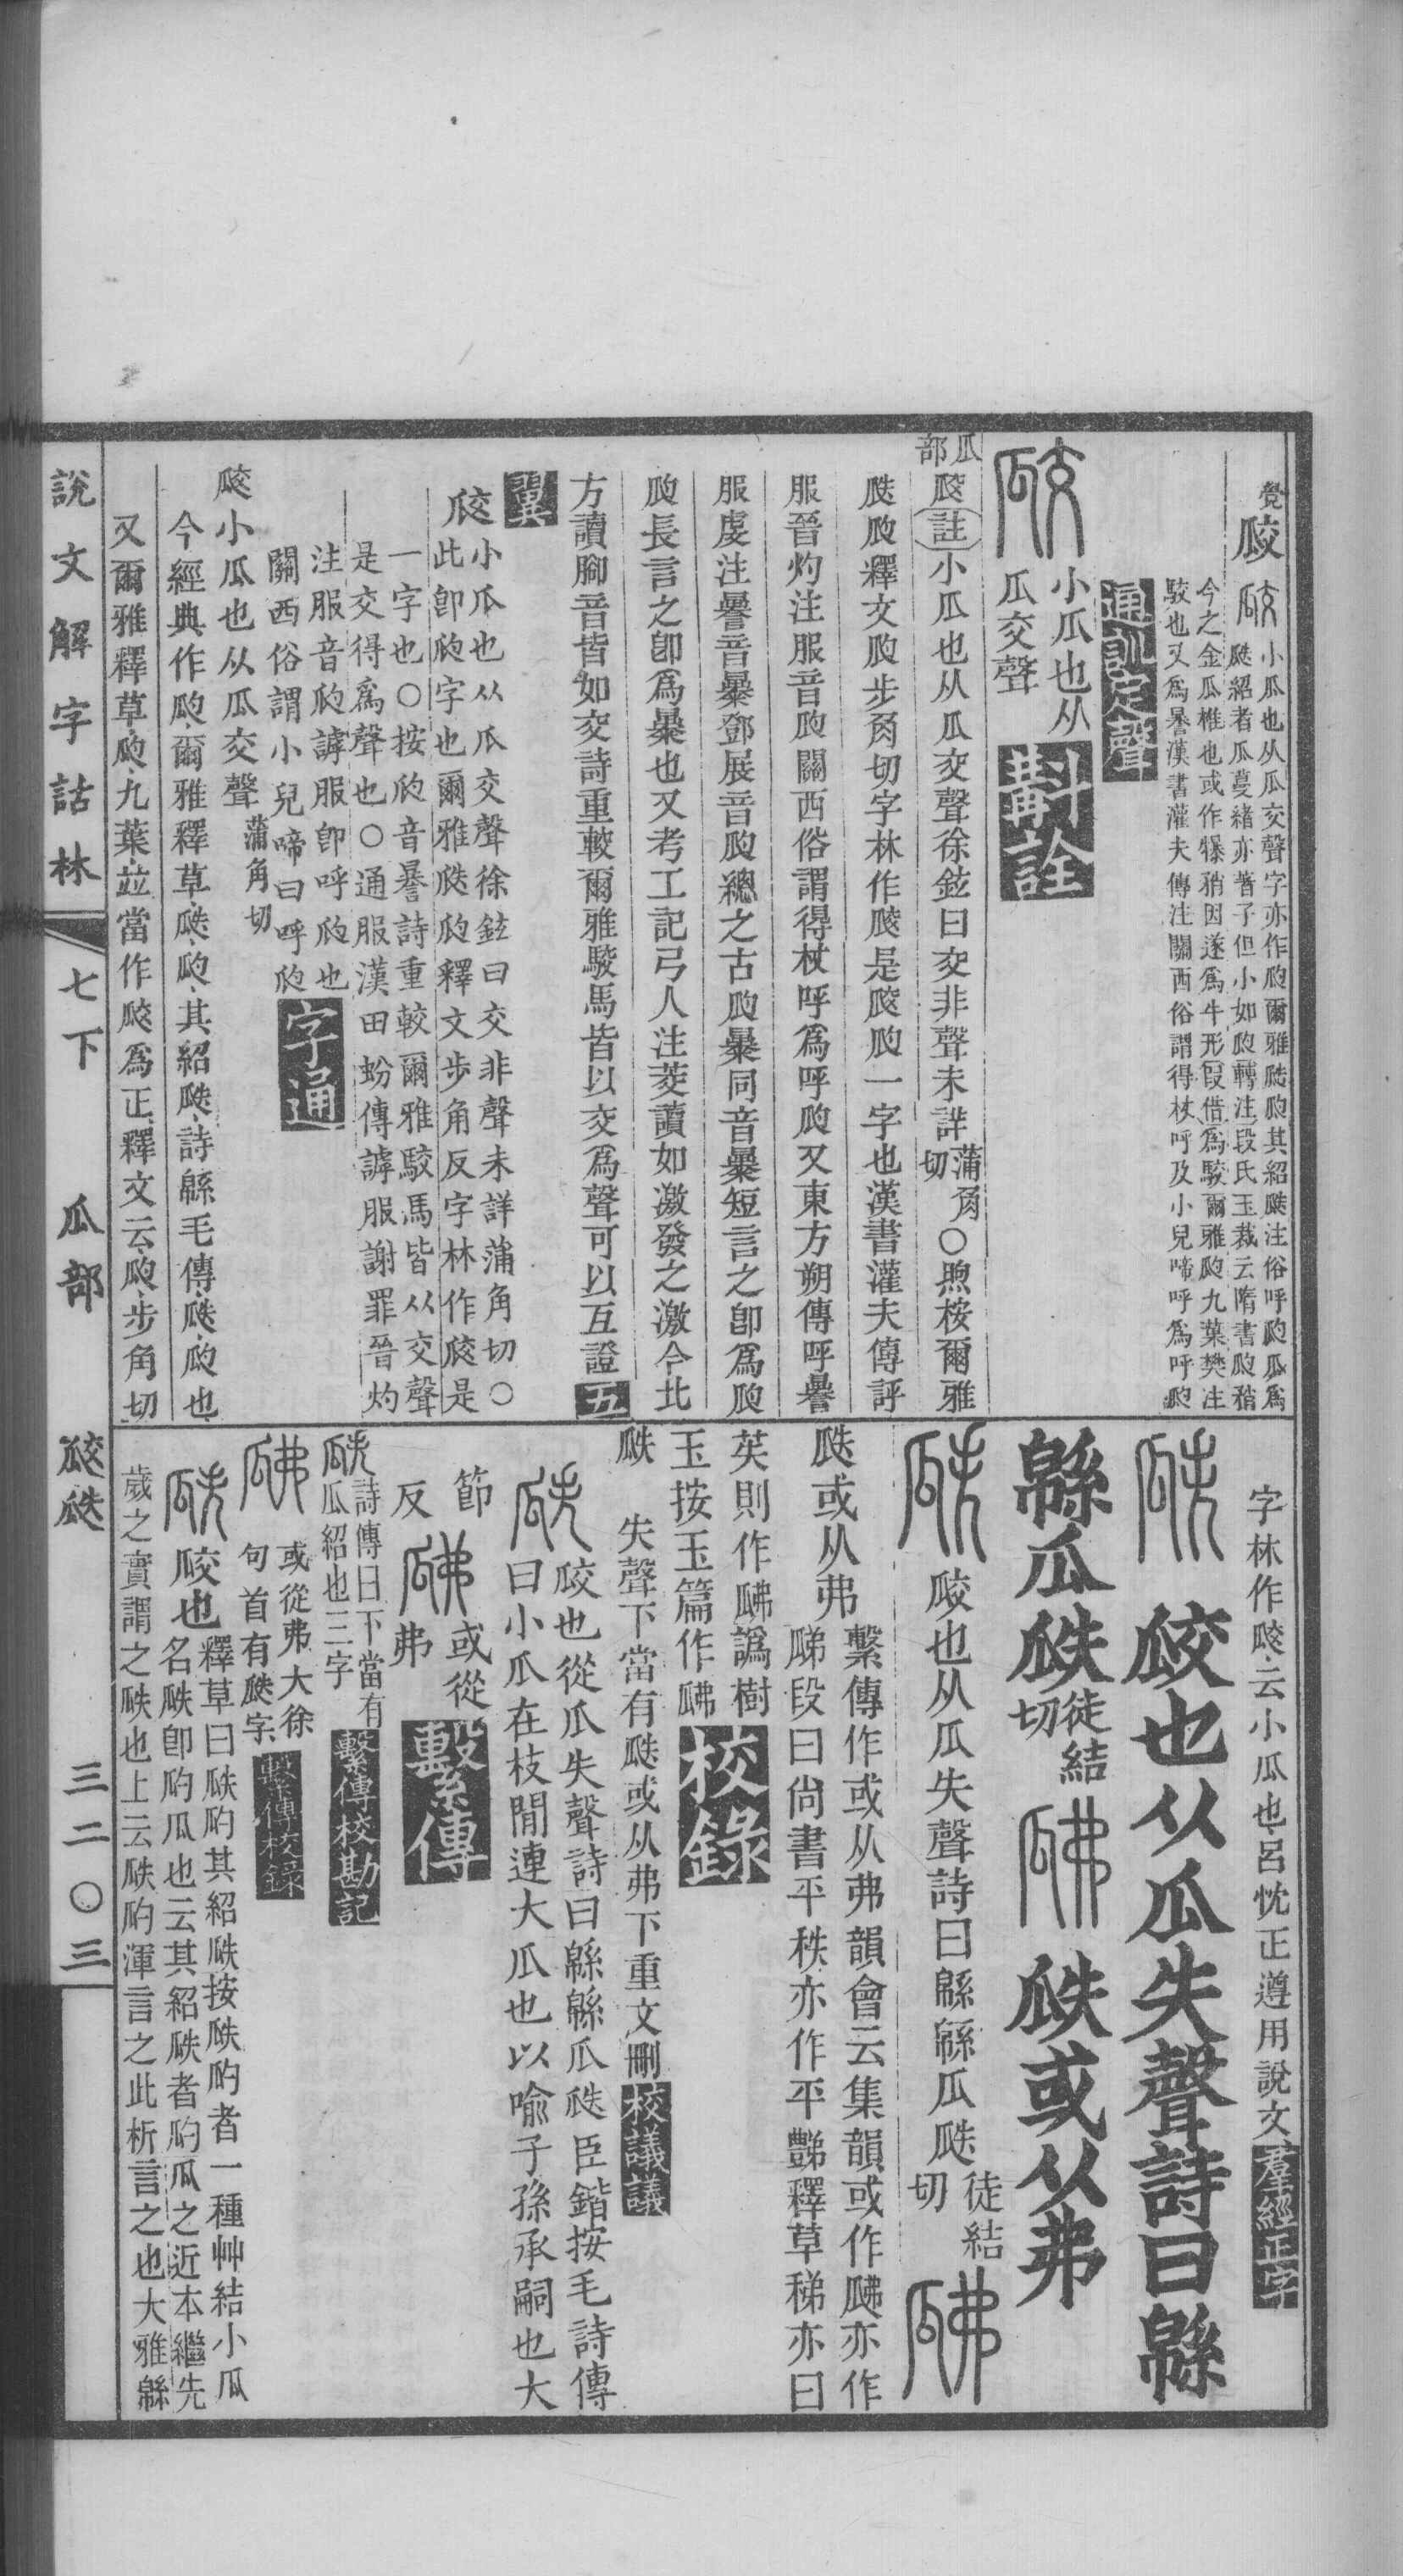 㼎
小瓜也从瓜交聲字亦作瓝爾雅瓞瓝其紹瓞注俗呼瓝瓜爲
瓞紹者瓜蔓緒亦著子但小如瓝轉注段氏玉裁云隋書瓝矟
今之金瓜椎也或作犦矟因遂爲牛形叚借爲駮爾雅瓝九葉樊注
駮也又爲暴漢書灌夫傳注關西俗謂得杖呼及小兒啼呼爲呼瓝
通訓定聲
小瓜也从
瓜交聲
斠詮
瓜部
㼎註小瓜也从瓜交聲徐鉉曰交非聲未詳蒲角切○煦桉爾雅
瓞瓝釋文瓝步角切字林作㼎是㼎瓝一字也漢書灌夫傳謼
服晉灼注服音瓝關西俗謂得杖呼爲呼瓝又東方朔傳呼謈
服虔注謈音暴鄧展音瓝總之古瓝暴同音暴短言之卽爲瓝
瓝長言之卽爲暴也又考工記弓人注茭讀如激發之激今北
方讀腳音皆如交詩重較爾雅駮馬皆以交爲聲可以互證五
翼
㼎
小瓜也从瓜交聲徐鉉曰交非聲未詳蒲角切○
此卽瓝字也爾雅瓞瓝釋文步角反字林作㼎是
一字也○按瓝音謈詩重較爾雅駮馬皆从交聲
是交得爲聲也○通服漢田蚡傳謼服謝罪晉灼
注服音瓝謼服卽呼瓝也
關西俗謂小兒啼曰呼瓝
字通
㼎小瓜也从瓜交聲蒲角切
今經典作瓝爾雅釋草瓞瓝其紹瓞詩緜毛傳瓞瓝也
又爾雅釋草瓝九葉竝當作㼎爲正釋文云瓝步角切
字林作㼎云小瓜也呂忱正遵用說文羣經正字
㼎也从瓜失聲詩曰緜
緜瓜瓞徒結切 瓞或从弗
㼎也从瓜失聲詩曰緜緜瓜瓞徒結切
瓞或从弗
繫傳作或从弗韻會云集韻或作𤬏亦作
㼵段曰尙書平秩亦作平豑釋草稊亦曰
苵則作𤬏譌樹
玉按玉篇作𤬏
校錄
瓞 失聲下當有瓞或从弗下重文刪校議議
㼎也從瓜失聲詩曰緜緜瓜瓞臣鍇按毛詩傳
曰小瓜在枝間連大瓜也以喻子孫承嗣也大
節反
或從弗
繫傳
詩傳曰下當有
瓜紹也三字
繫傳校勘記
或從弗大徐
句首有瓞字
繫傳校錄
㼎也
釋草曰瓞瓝其紹瓞按瓞瓝者一種艸結小瓜
名瓞卽瓝瓜也云其紹瓞者瓝瓜之近本繼先
歲之實謂之瓞也上云瓞瓝渾言之此析言之也大雅緜
說文解字詁林 七下 瓜部 㼎瓞 三二〇三